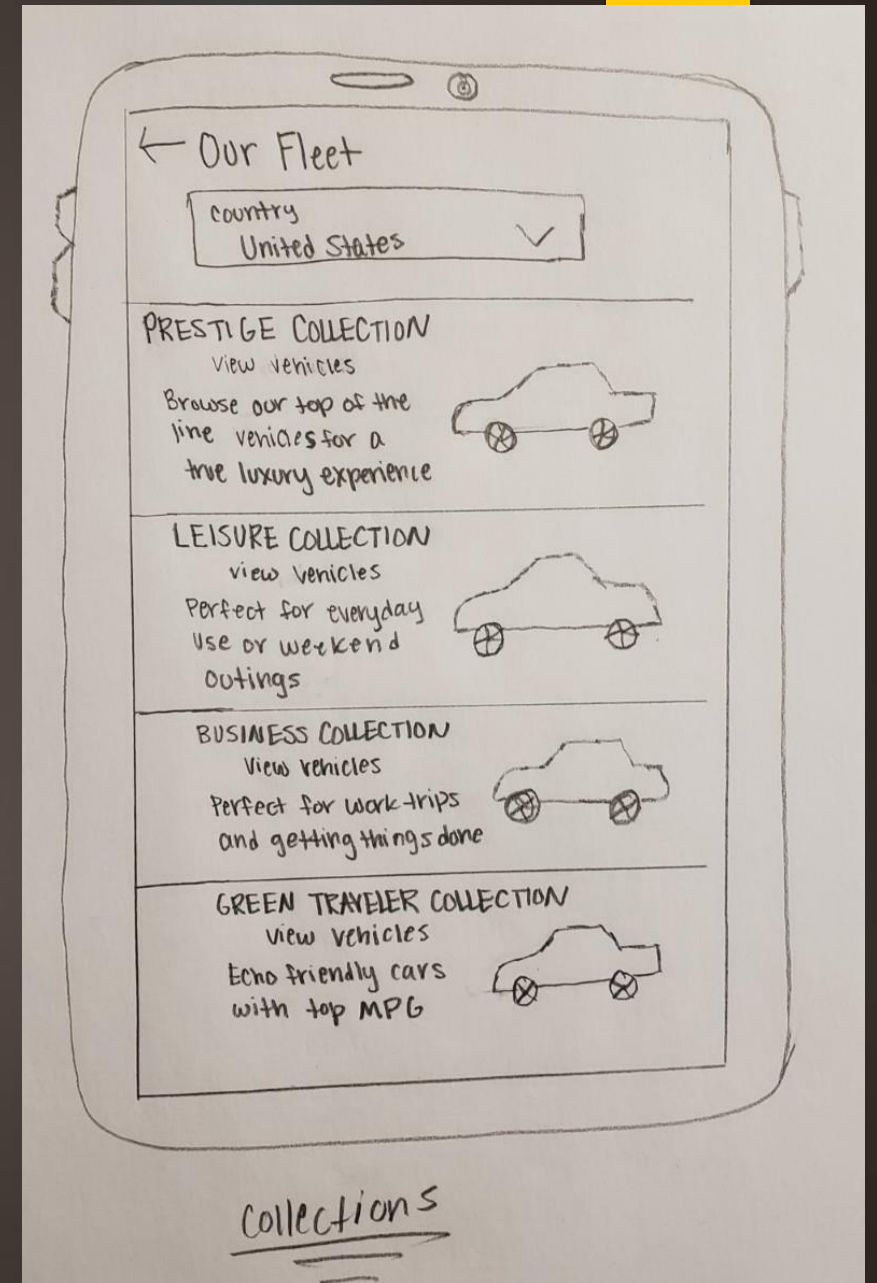 ← Our Fleet
Country
United States
PRESTIGE COLLECTION
View vehicles
Browse our top of the
line vehicles for a
true luxury experience
LEISURE COLLECTION
view vehicles
Perfect for everyday
use or weekend
outings
BUSINESS COLLECTION
View vehicles
Perfect for work trips
and getting things done
GREEN TRAVELER COLLECTION
view vehicles
Echo friendly cars
with top MPG
Collections